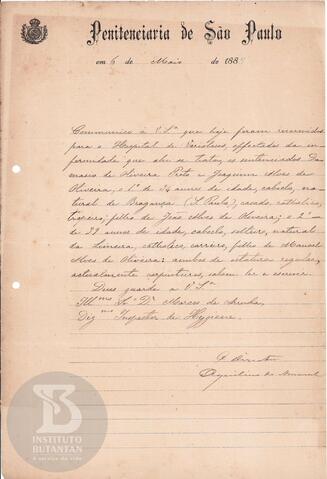 Penitenciaria de São Paulo
em 6 de Maio de 1889
Communico á V. Sª que hoje foram removidos
para o Hospital de Variolosos, affectados da en-
fermidade que alli se trata, os sentenciados Da-
masio de Oliveira Preto e Joaquim Alves de
Oliveira, o 1º de 34 annos de idade, caboclo, na-
tural de Bragança (S. Paulo), casado, catholico,
filho de João Alves de Oliveira; o 2º
de 22 annos de idade, caboclo, solteiro, natural
da Limeira, catholico, carreiro, filho de Manoel
Alves de Oliveira: ambos de estatura regular,
actualmente carpinteiros, sabem ler e escrever.
Deus guarde a V. Sª
Illmo Sr Dr Marcos de Arruda,
Digmo Inspector de Hygiene.
O Director
do Amaral
INSTITUTO
BUTANTAN
A serviço da vida